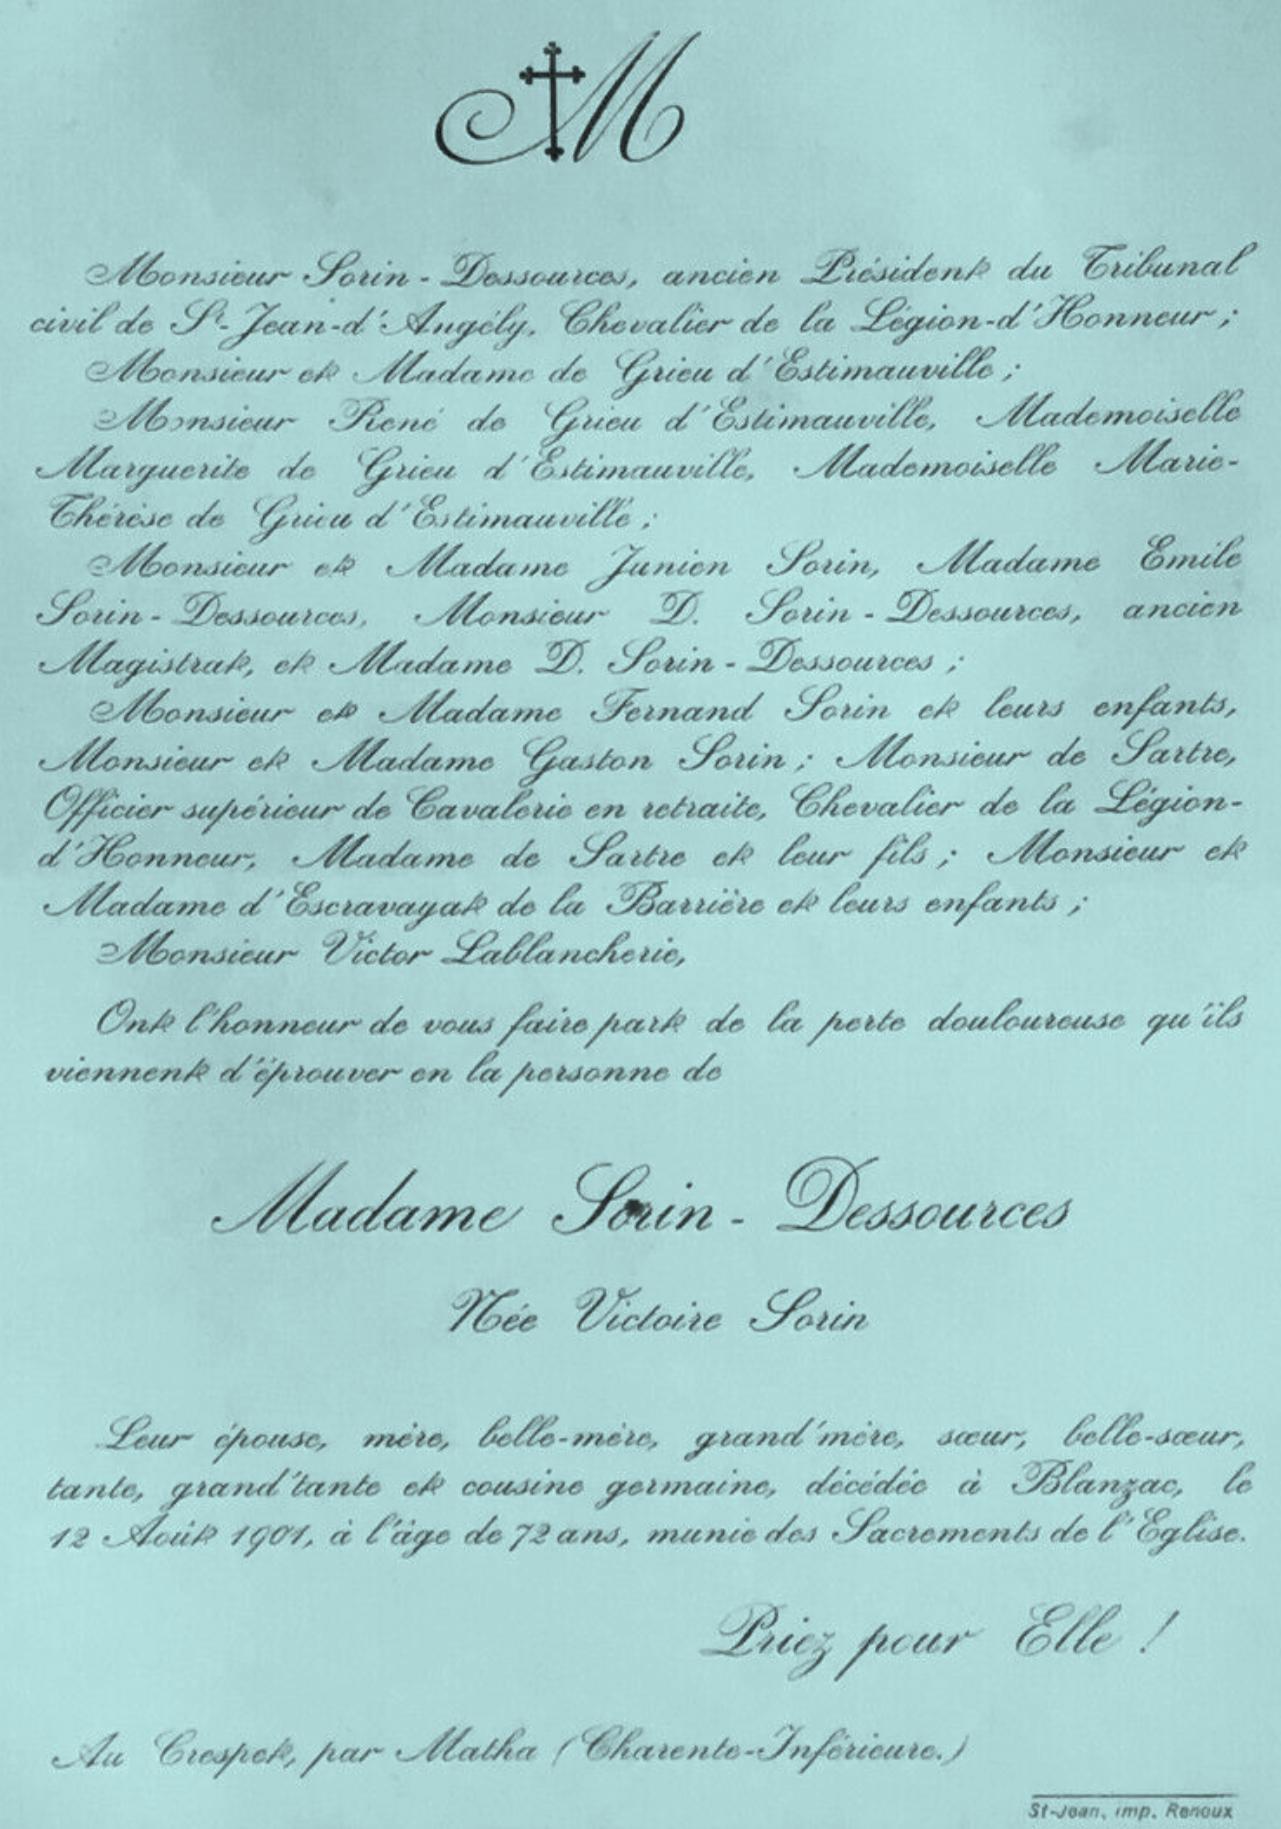 M
Monsieur Sorin-Dessources, ancien Président du Tribunal
civil de St-Jean-d'Angély, Chevalier de la Légion-d'Honneur ;
Monsieur et Madame de Grieu d'Estimauville ;
Monsieur René de Grieu d'Estimauville, Mademoiselle
Marguerite de Grieu d'Estimauville, Mademoiselle Marie-
Thérèse de Grieu d'Estimauville ;
Monsieur et Madame Junien Sorin, Madame Emile
Sorin-Dessources, Monsieur D. Sorin-Dessources, ancien
Magistrat, et Madame D. Sorin-Dessources ;
Monsieur et Madame Fernand Sorin et leurs enfants,
Monsieur et Madame Gaston Sorin ; Monsieur de Sartre,
Officier supérieur de Cavalerie en retraite, Chevalier de la Légion-
d'Honneur, Madame de Sartre et leur fils ; Monsieur et
Madame d'Escravayat de la Barrière et leurs enfants ;
Monsieur Victor Lablancherie,
Ont l'honneur de vous faire part de la perte douloureuse qu'ils
viennent d'éprouver en la personne de
Madame Sorin-Dessources
Née Victoire Sorin
Leur épouse, mère, belle-mère, grand'mère, sœur, belle-sœur,
tante, grand'tante et cousine germaine, décédée à Blanzac, le
12 Août 1901, à l'âge de 72 ans, munie des Sacrements de l'Eglise.
Priez pour Elle !
Au Crespet, par Matha (Charente-Inférieure.)
St-Jean, imp. Renoux